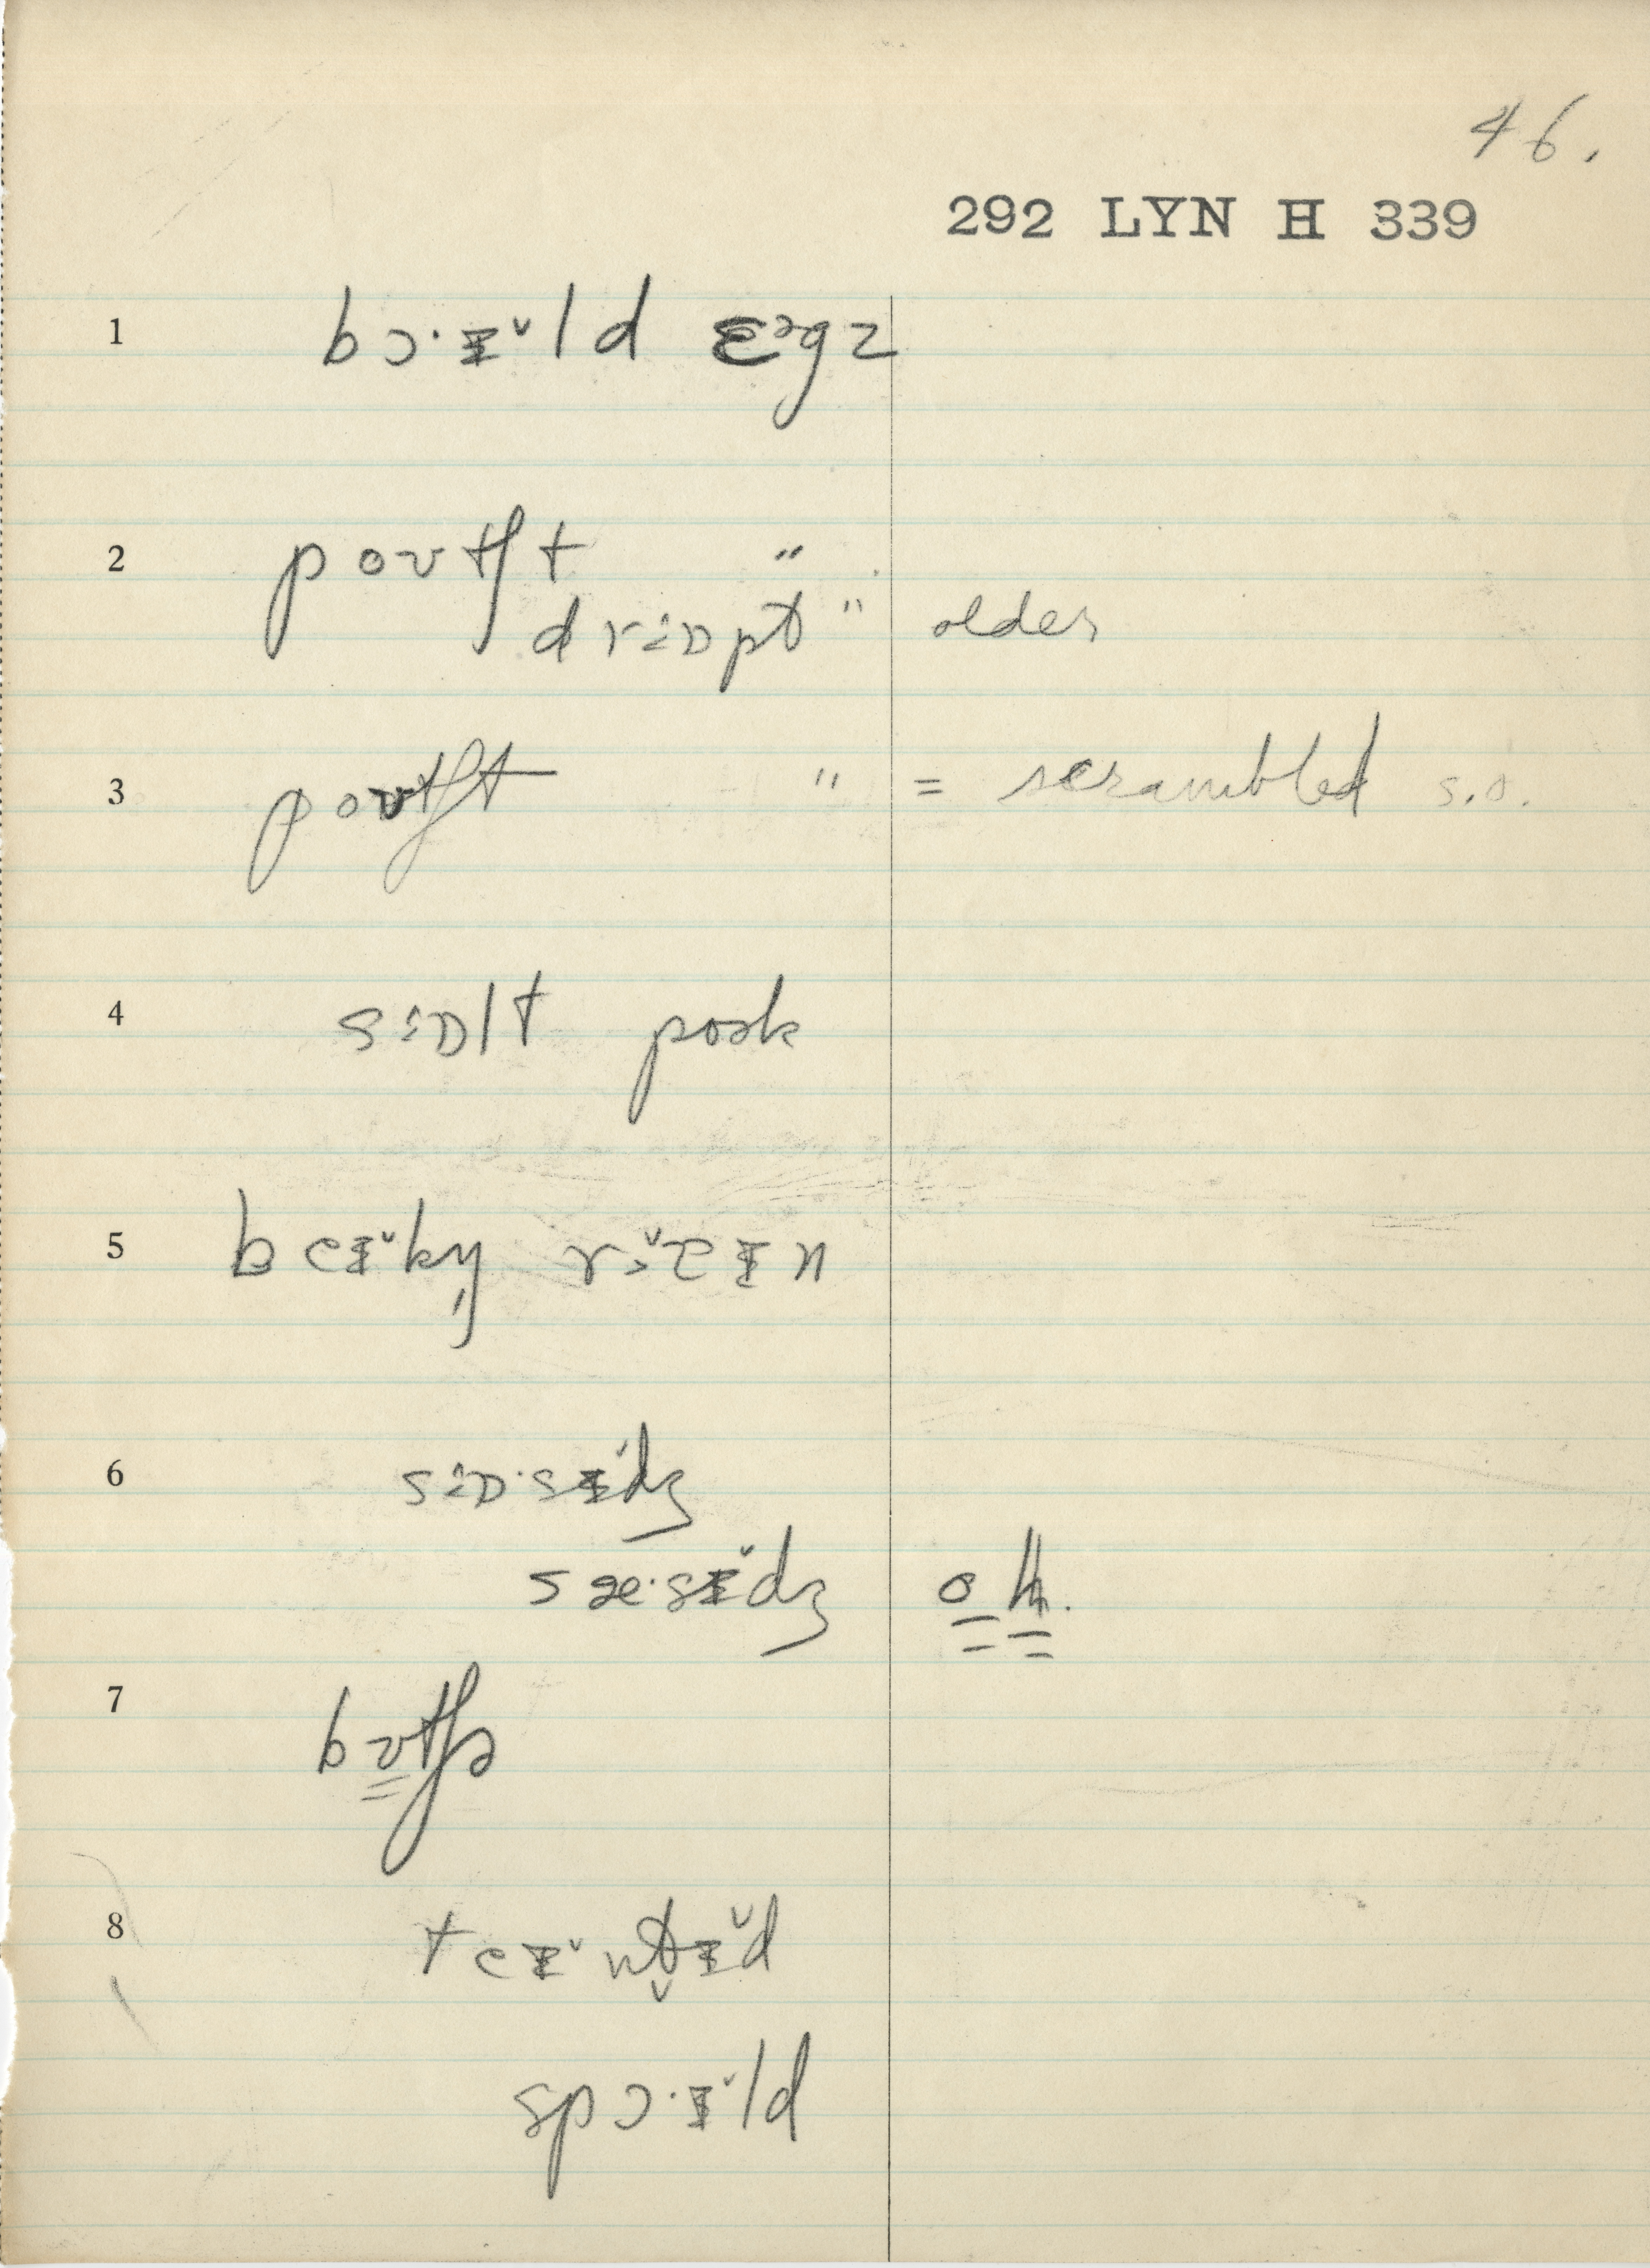 46.
292 LYN H 339
1 bɔ·ɪ̵̌ld ɛᵊgz
2 poʊtʃt "
drɒpt " older
3 poʊtʃt " = scrambled s.o.
4 sɒlt pɔək
5 beɪ̵̌kn̩
6 sɒ·sɪ̵̌dʒ
sæ·sɪ̵̌dʒ oth.
7 bʊtʃɚ
8 teɪ̵̌nt̬ɪ̵̌d
spɔ·ɪ̵̌ld